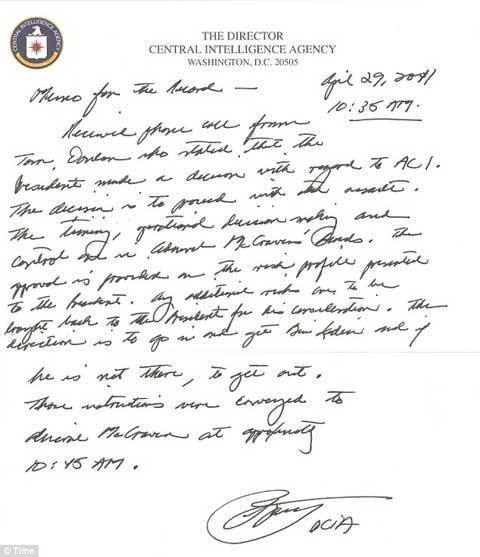 CENTRAL INTELLIGENCE AGENCY
UNITED STATES OF AMERICA
THE DIRECTOR
CENTRAL INTELLIGENCE AGENCY
WASHINGTON, D.C. 20505
April 29, 2011
10:35 AM.
Memo for the Record —
Received phone call from
Tom Donilon who stated that the
President made a decision with regard to AC1.
The decision is to proceed with the assault.
The timing, operational decision making and
control are in Admiral McRaven's hands. The
approval is provided on the risk profile presented
to the President. Any additional risks are to be
brought back to the President for his consideration. The
direction is to go in and get Bin Laden and if
he is not there, to get out.
Those instructions were conveyed to
Admiral McRaven at approximately
10:45 AM.
DCIA
© Time